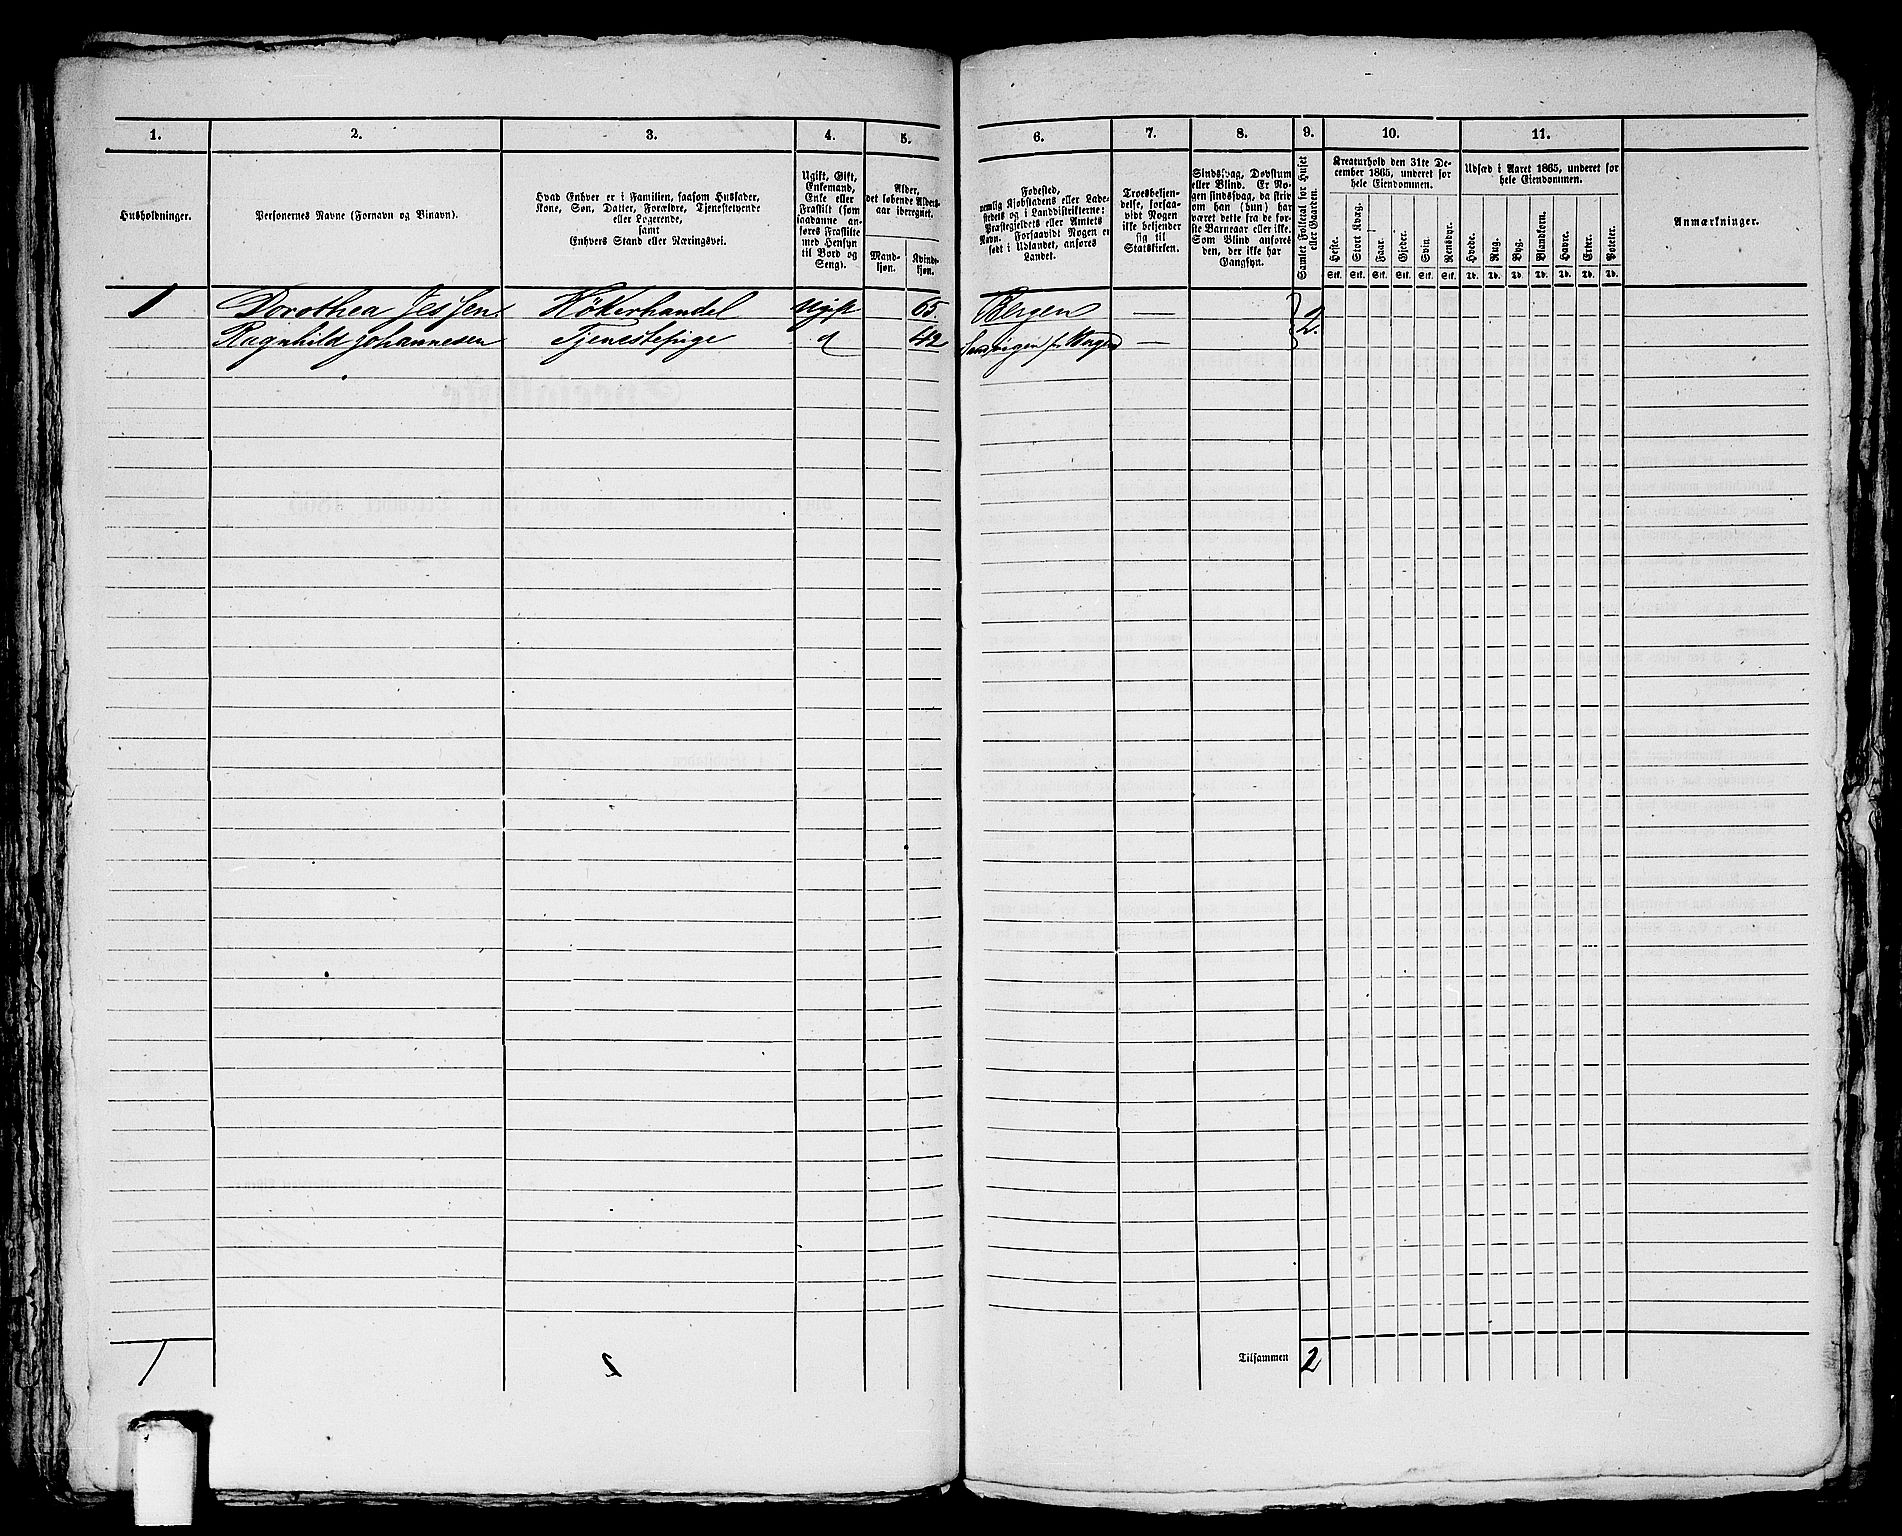 1. 2. 3. 4. 5. 6. 7. 8. 9. 10. 11.
Husholdninger.
Personernes Navne (Fornavn og Binavn).
Hvad Enhver er i Familien, saasom Husfader,
Kone, Søn, Datter, Forældre, Tjenestetyende
eller Logerende,
samt
Enhvers Stand eller Næringsvei.
Ugift, Gift,
Enkemand,
Enke eller
Fraskilt (som
saadanne an-
føres Fraskilte
med Hensyn
til Bord og
Seng).
Alder,
det løbende Alders-
aar iberegnet.
Mand-
kjøn.
Kvinde-
kjøn.
Fødested,
nemlig Kjøbstadens eller Lade-
stedets og i Landdistrikterne:
Præstegjeldets eller Amtets
Navn. Forsaavidt Nogen er
født i Udlandet, anføres
Landet.
Troesbekjen-
delse, forsaa-
vidt Nogen
ikke bekjender
sig til
Statskirken.
Sindssvag, Døvstum
eller Blind. Er No-
gen sindssvag, da skrives
om han (hun) har
været dette fra de før-
ste Barneaar eller ikke.
Som Blind anføres
den, der ikke har
Gangsyn.
Samlet Folketal for Huset
eller Gaarden.
Kreaturhold den 31te De-
cember 1865, underet for
hele Eiendommen.
Heste. Stort Kvæg. Faar. Gjeder. Svin. Rensdyr.
Stk. Stk. Stk. Stk. Stk. Stk.
Udsæd i Aaret 1865, underet for
hele Eiendommen.
Hvede. Rug. Byg. Blandkorn. Havre. Erter. Poteter.
Td. Td. Td. Td. Td. Td. Td.
Anmærkninger.
1 Dorothea Jessen Høkerhandel Ugift 65. Bergen — 2.
Ragnhild Johannesen Tjenestepige d 42 Sandvigen —
1 2 Tilsammen 2